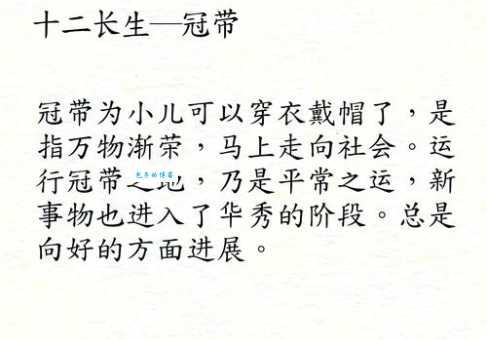 十二长生—冠带
冠带为小儿可以穿衣戴帽了，是
指万物渐荣，马上走向社会。运
行冠带之地，乃是平常之运，新
事物也进入了华秀的阶段。总是
向好的方面进展。